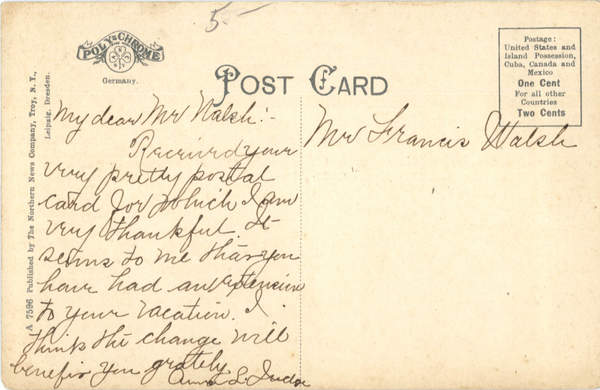 5-
POLY-CHROME
Germany.
POST CARD
Postage:
United States and
Island Possession,
Cuba, Canada and
Mexico
One Cent
For all other
Countries
Two Cents
A 7596 Published by The Northern News Company, Troy, N. Y.,
Leipzig, Dresden.
My dear Mr Walsh:-
Received your
very pretty postal
card for which I am
very thankful. It
seems to me that you
have had an extension
to your vacation. I
think the change will
benefit you grately
Anna L.
Mr Francis Walsh